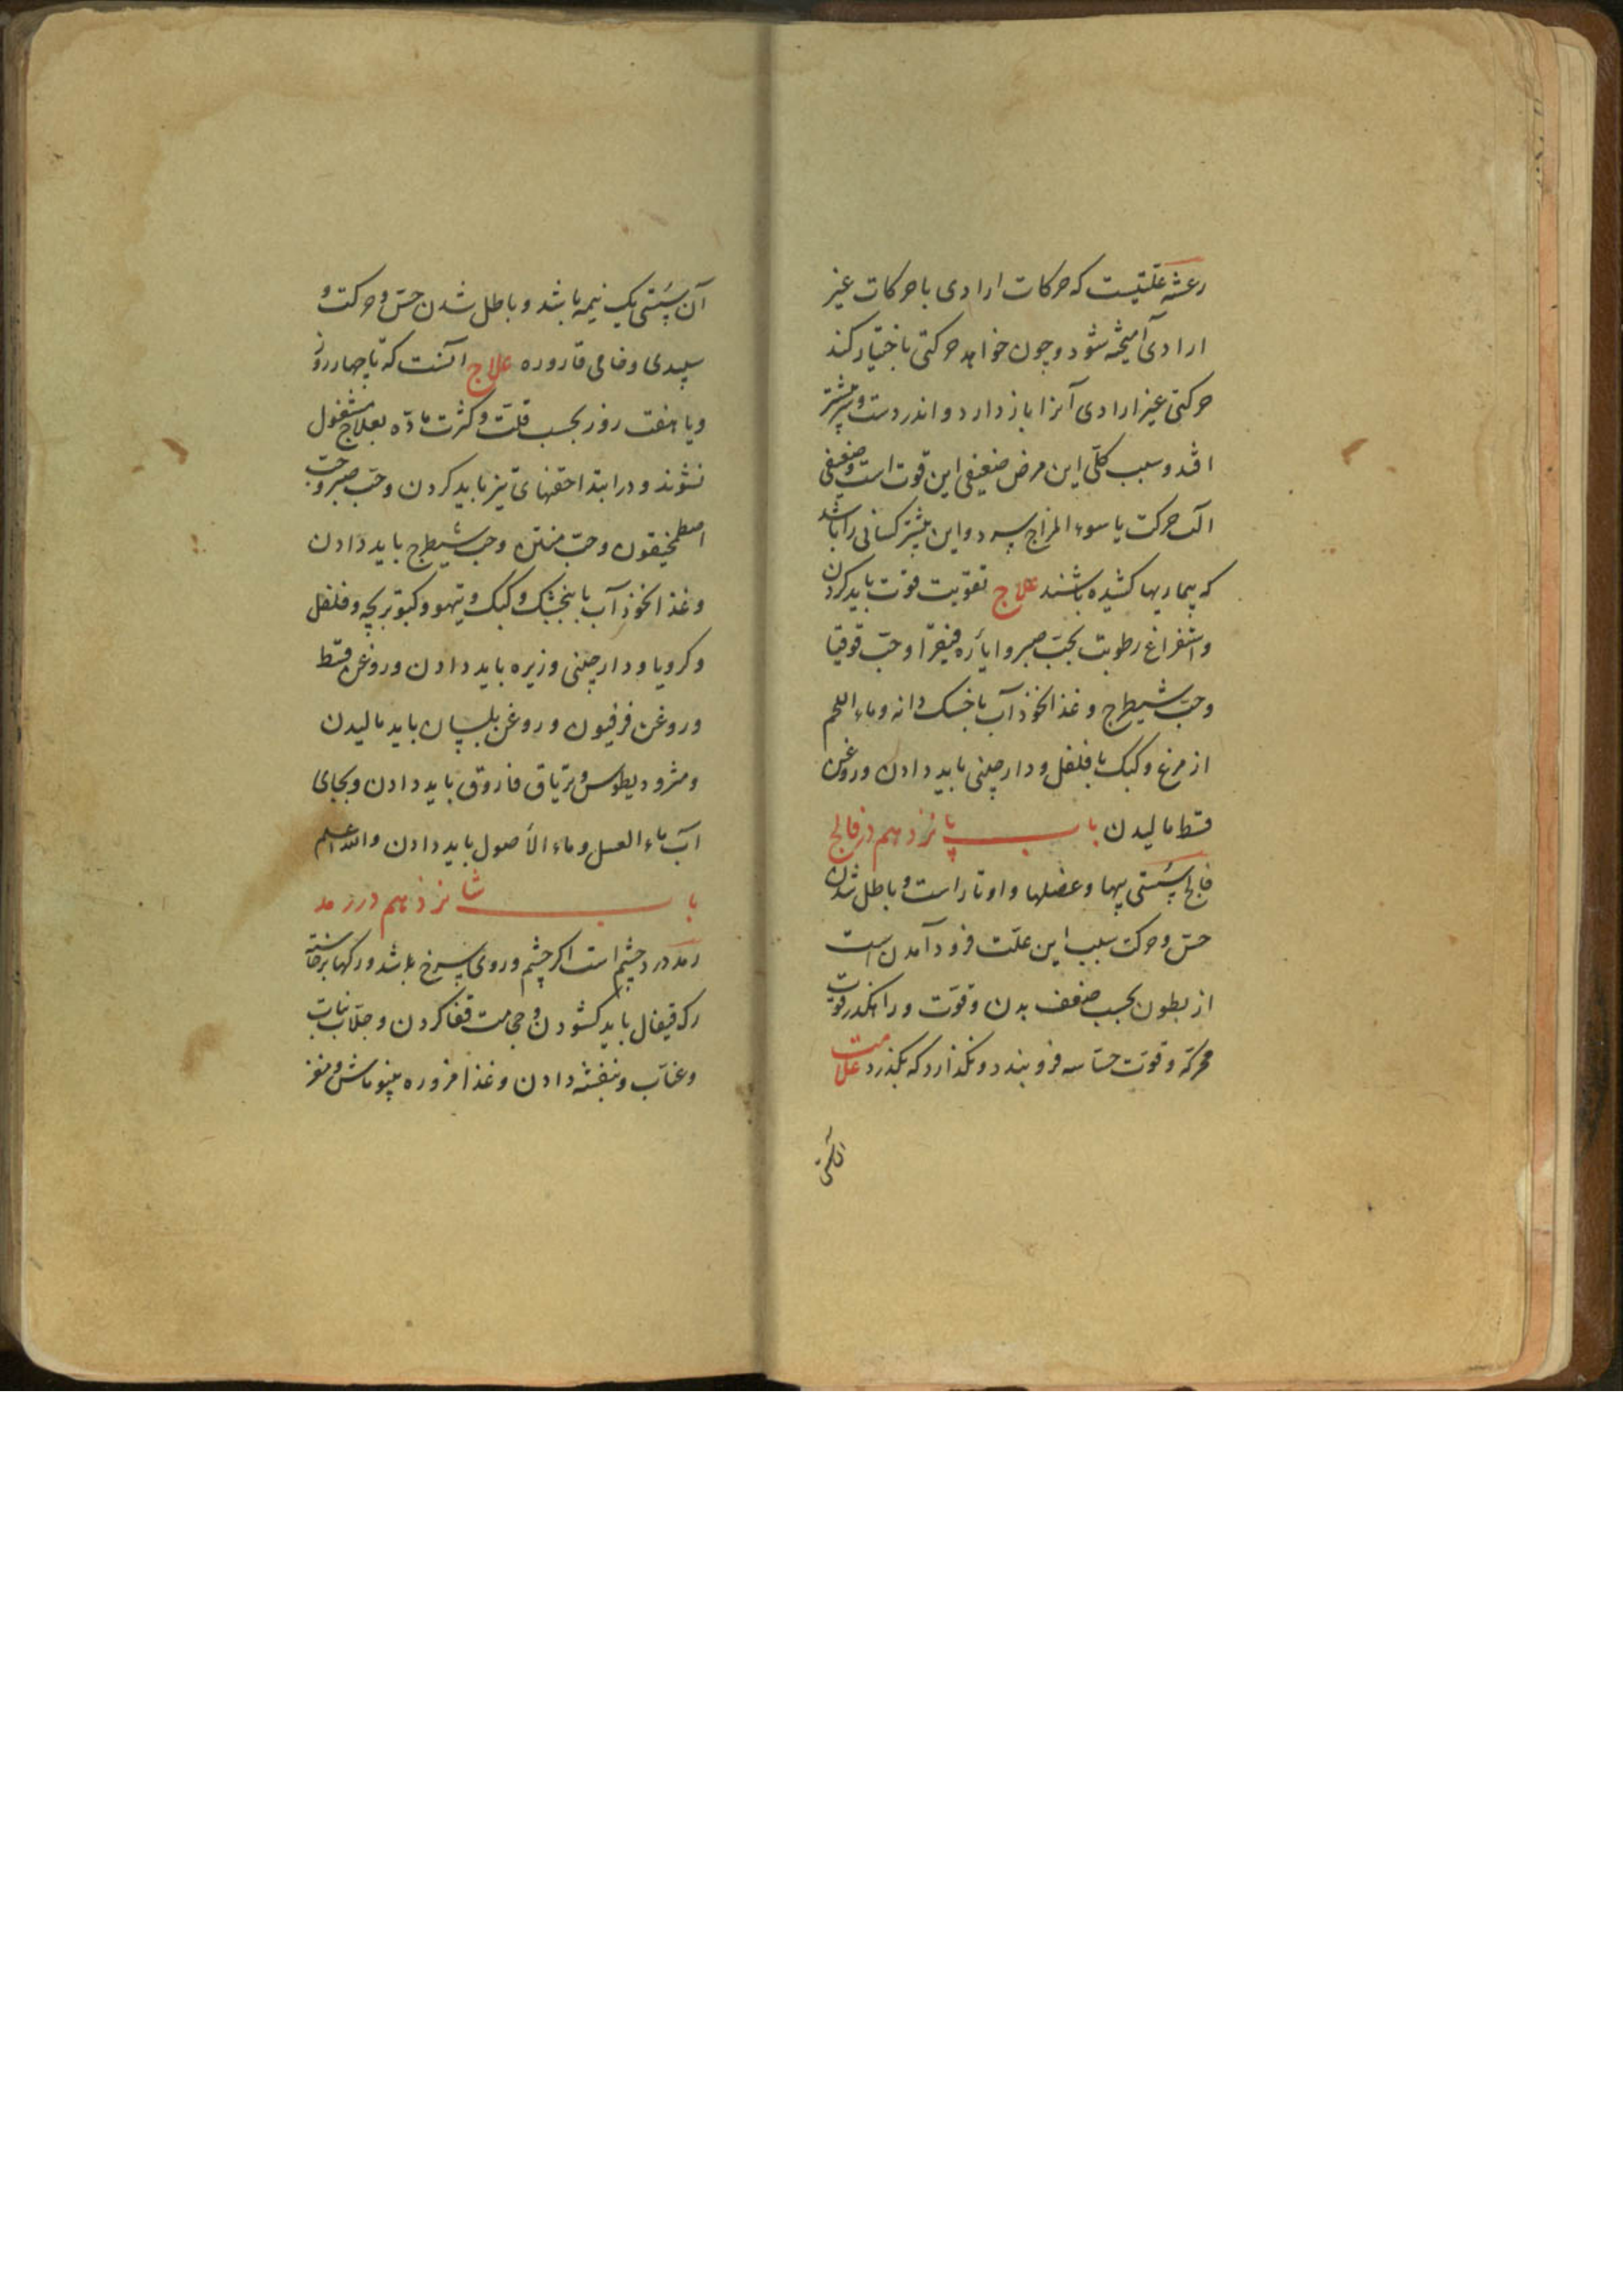 رعشه علّتیست که حرکات ارادی با حرکات غیر
ارادی آمیخته شود و چون خواهد حرکتی باختیار کند
حرکتی غیر ارادی آنرا باز دارد و اندر دست و سر بیشتر
افتد و سبب کلّی این مرض ضعیفی این قوت است و ضعیفی
آلت حرکت یا سوء المزاج سرد و این بیشتر کسانی را باشد
که بیماریها کشیده باشند علاج تقویت قوت باید کردن
و استفراغ رطوبت بحبّ صبر و ایاره فیقرا و حبّ قوقیا
و حبّ شیطرج و غذا نخود آب با خسک دانه و ماء اللحم
از مرغ و کبک با فلفل و دارچینی باید دادن و روغن
قسط مالیدن باب پانزدهم در فالج
فالج سستی پیها و عضلها و اوتار است و باطل شدن
حسّ و حرکت سبب این علّت فرود آمدن است
از بطون بحسب ضعف بدن و قوّت و راهکذر قوت
محرکه و قوّت حسّاسه فرو بندد و نکذارد که بکذرد علامت
آن سستی یک نیمه باشد و باطل شدن حسّ و حرکت و
سپیدی و خامی قاروره علاج آنست که تا چهار روز
و یا هفت روز بحسب قلّت و کثرت مادّه بعلاج مشغول
نشوند و در ابتدا حقنهای تیز باید کردن و حبّ صبر و حبّ
اصطمخیقون و حبّ منتن و حبّ شیطرج باید دادن
و غذا نخود آب با بنجشک و کبک و تیهو و کبوتر بچه و فلفل
و کرویا و دارچینی و زیره باید دادن و روغن قسط
و روغن فرفیون و روغن بلسان باید مالیدن
و مثرودیطوس و تریاق فاروق باید دادن و بجای
آب ماء العسل و ماء الأصول باید دادن والله اعلم
باب شانزدهم در رمد
رمد درد چشم است اکر چشم و روی سرخ باشد و رکها برخاسته
رک قیفال باید کشودن و حجامت قفا کردن و جلّاب نبات
و عنّاب و بنفشه دادن و غذا مزوره بینوماش و مغز